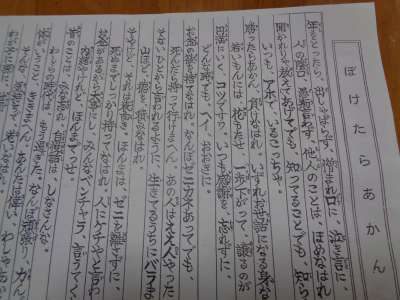 ぼけたらあかん
年をとったら、出しゃばらず、憎まれ口に、泣き言に
人の陰口、愚痴言わず、他人のことは、ほめなはれ
聞かれりゃ教えてあげてでも、知ってることでも、知ら
いつも、アホでいるこっちゃ。
勝ったらあかん、負けなはれ、いずれお世話になる身な
若いもんには、花もたせ、一歩下がって、譲るのが
円満にいく、コツですわ、いつも感謝を、忘れずに、
どんな時でも、へえ、おおきに。
お金の欲を捨てなはれ、なんぼゼニカネあってでも、
死んだら持って行けまへん、あの人はええ人やった
そないひとから言われるように、生きてるうちにバラま
山ほど、徳を積みなはれ
そやけど、それは表向き、ほんまは、ゼニを離さずに、
死ぬまでしっかり持ってなはれ、人にケチやと言わ
お金があるから大事にし、みんなベンチャラ、言うてく
内緒やけれど、ほんまでっせ。
昔のことは、みな忘れ、自慢話は、しなさんな、
時代は、もう過ぎた、なんぼ頑張り、力ん
いうこと、ききまへん、あんたは偉い、わしゃあ